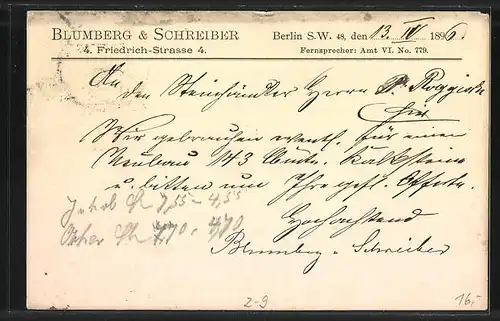 BLUMBERG & SCHREIBER
4. Friedrich-Strasse 4.
Berlin S.W. 48, den 13. IV 1896.
Fernsprecher: Amt VI. No. 779.
An
den Steinhändler Herrn P.
hier
Wir gebrauchen event. für einen
Neubau 143 Kalksteine
u. bitten um Ihre gefl. Offerte.
Hochachtend
Blumberg u. Schreiber
7,55 - 4,55
4,70
2-9
16,-